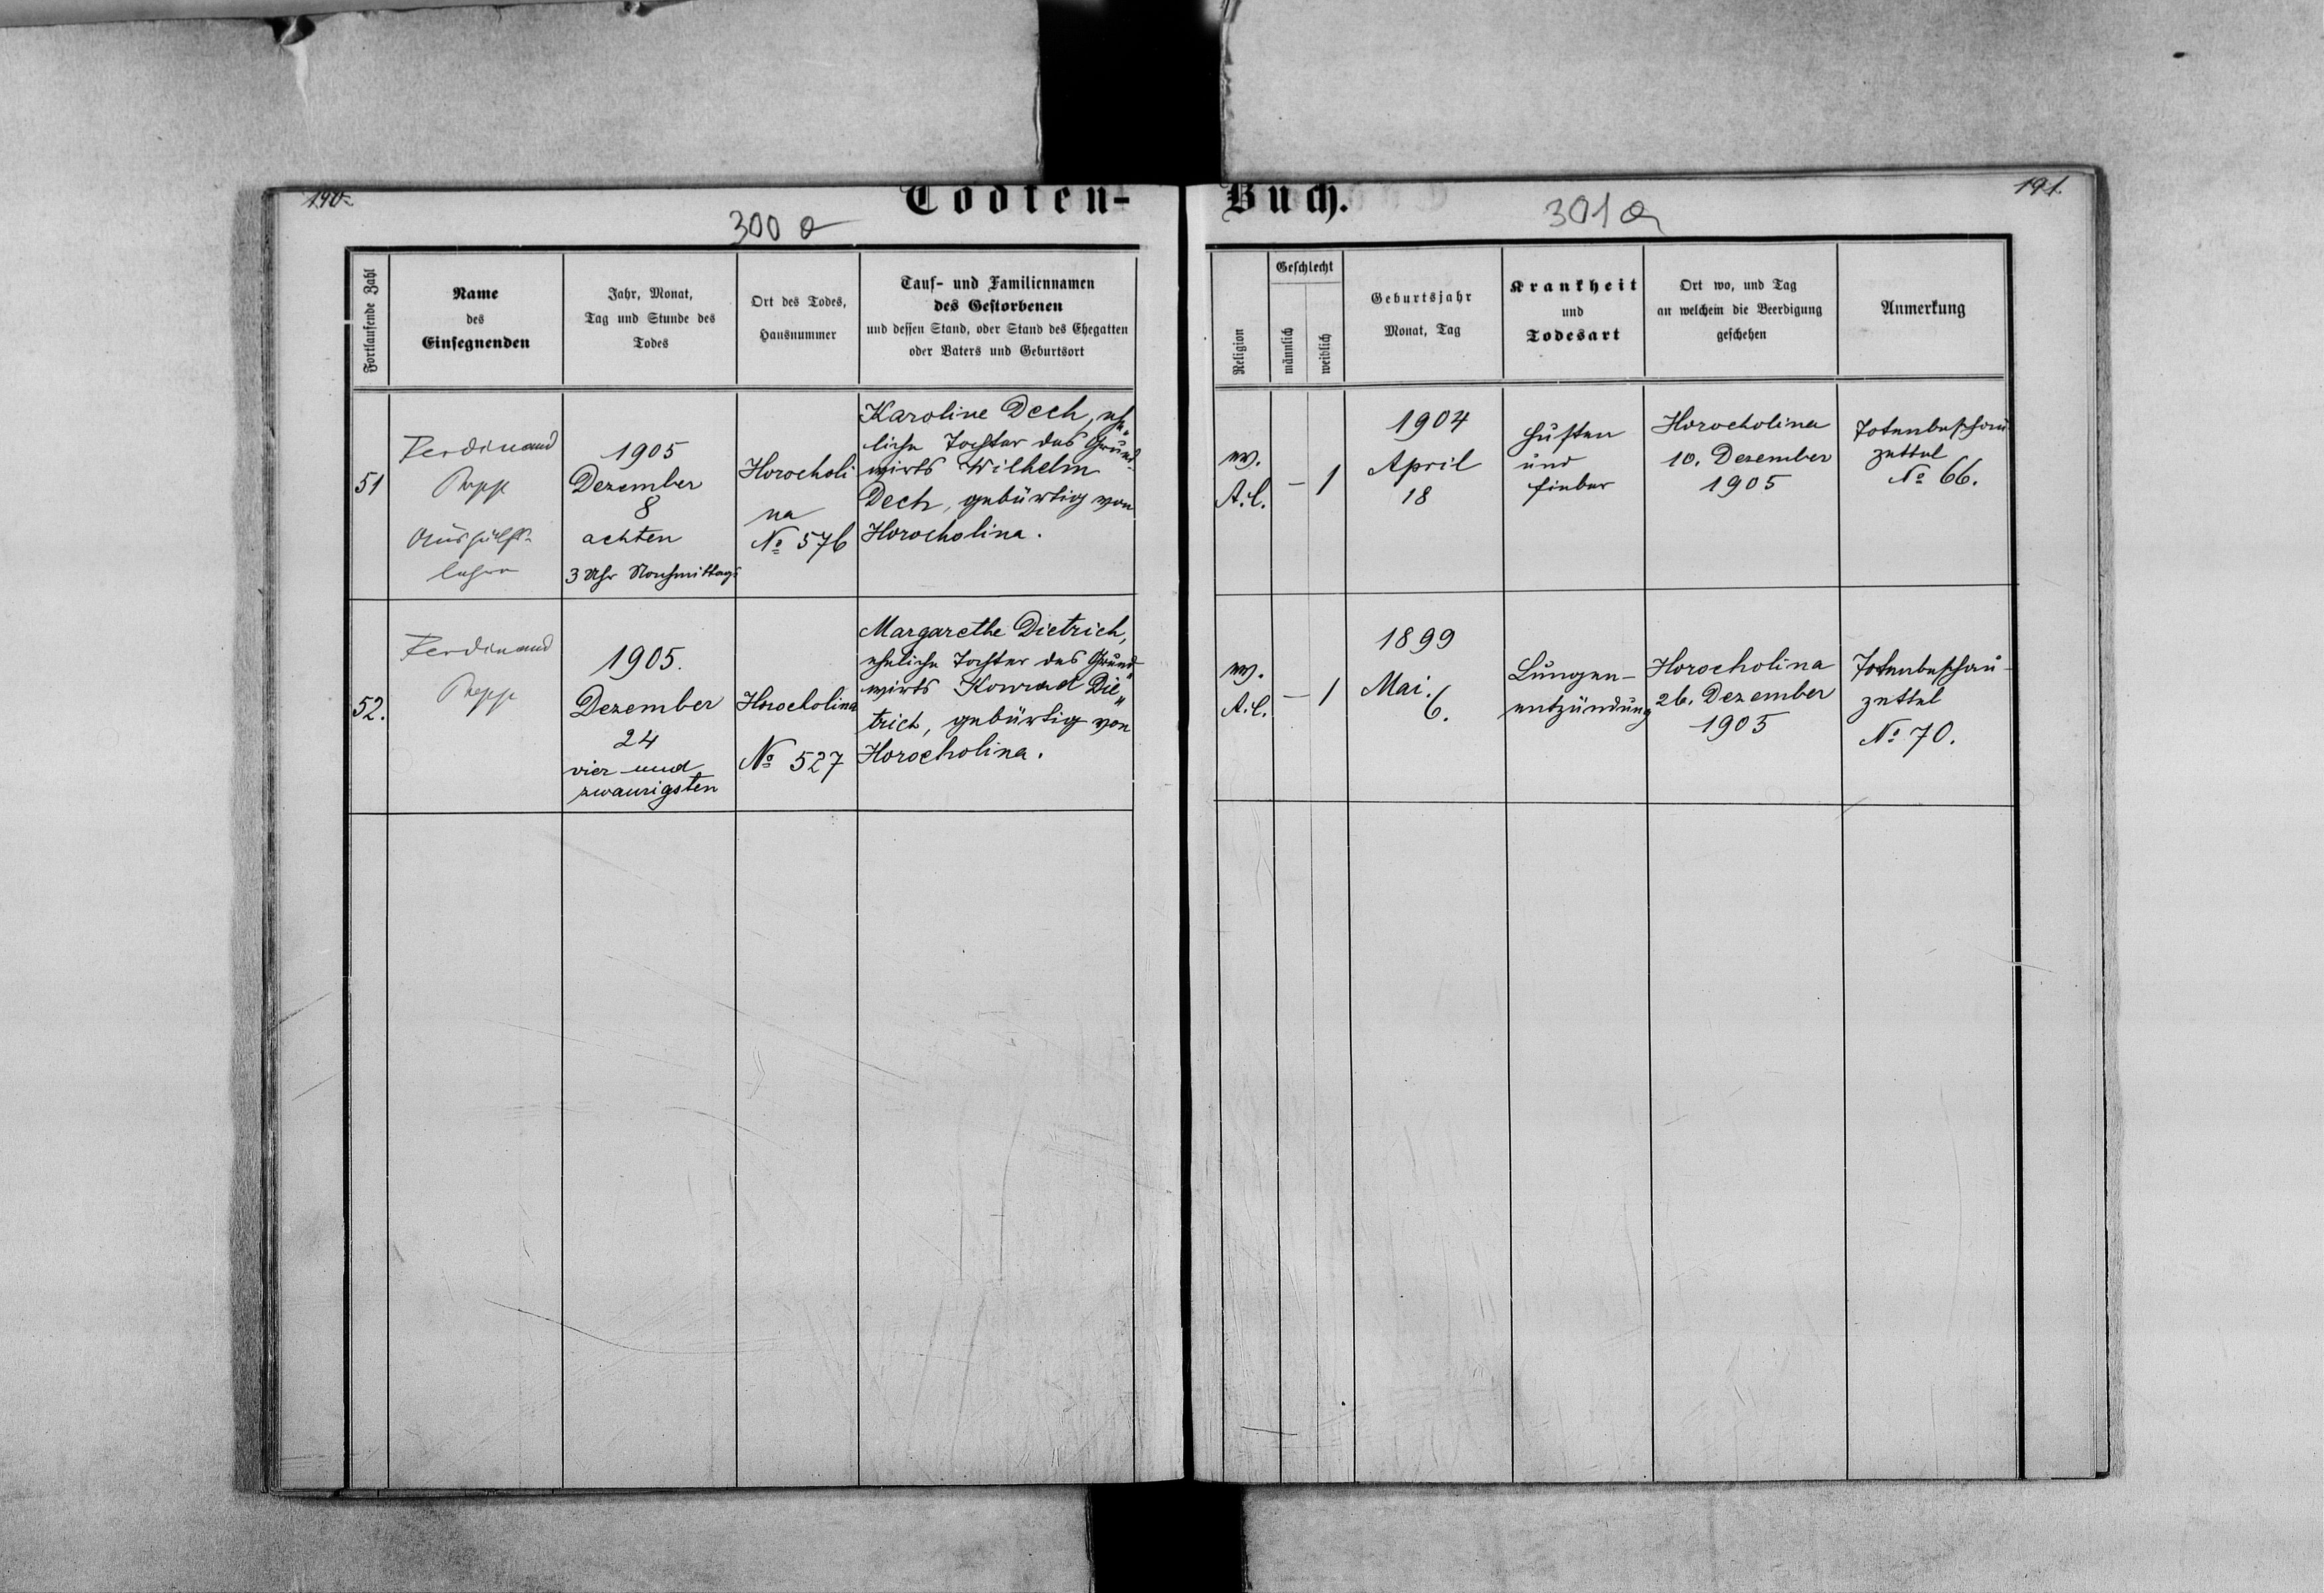 190.
Todten-
300 a
Fortlaufende Zahl
Name
des
Einsegnenden
Jahr, Monat,
Tag und Stunde des
Todes
Ort des Todes,
Hausnummer
Tauf- und Familiennamen
des Gestorbenen
und dessen Stand, oder Stand des Ehegatten
oder Vaters und Geburtsort
51
Ferdinand
Aushülfs-
lehrer
1905
Dezember
8
achten
3 Uhr Nachmittags
Horocholi
na
№ 576
Karoline Dech, ehe-
liche Tochter des Grund-
wirts Wilhelm
Dech, gebürtig von
Horocholina.
52.
Ferdinand
1905.
Dezember
24
vier und
zwanzigsten
Horocholina
№ 527
Margarethe Dietrich,
eheliche Tochter des Grund-
wirts Konrad Die„
trich, gebürtig von
Horocholina.
Buch.
191.
301 a
Religion
Geschlecht
männlich
weiblich
Geburtsjahr
Monat, Tag
Krankheit
und
Todesart
Ort wo, und Tag
an welchem die Beerdigung
geschehen
Anmerkung
ev.
A.C.
–
1
1904
April
18
Husten
und
Fieber
Horocholina
10. Dezember
1905
Totenbeschau-
zettel
№ 66.
ev.
A.C.
–
1
1899
Mai.
6.
Lungen-
entzündung
Horocholina
26. Dezember
1905
Totenbeschau-
zettel
№ 70.